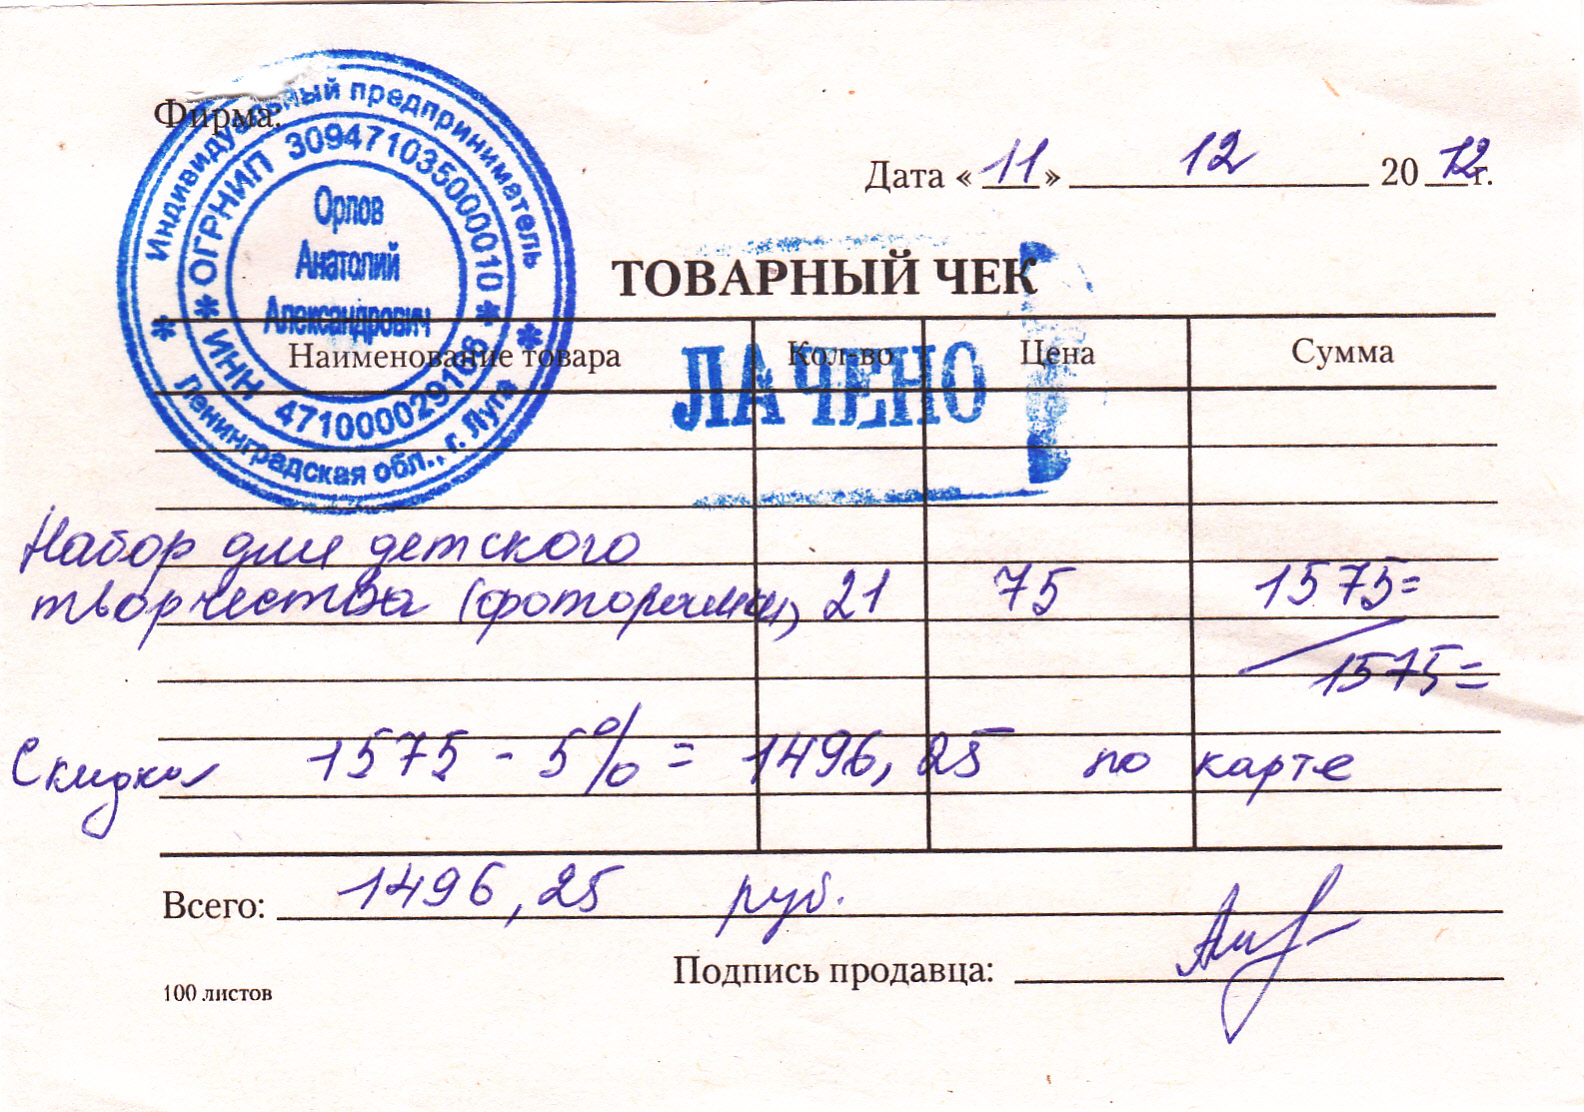 Фирма:
Индивидуальный предприниматель
ОГРНИП 309471035000010
Орлов
Анатолий
Александрович
ИНН 471000029166
Ленинградская обл., г. Луга
Дата « 11 » 12 20 12 г.
ТОВАРНЫЙ ЧЕК
ЛАЧЕНО
Наименование товара Кол-во Цена Сумма
Набор для детского
творчества (фоторамки) 21 75 1575=
1575=
Скидка 1575 - 5% = 1496,25 по карте
Всего: 1496,25 руб.
Подпись продавца:
100 листов